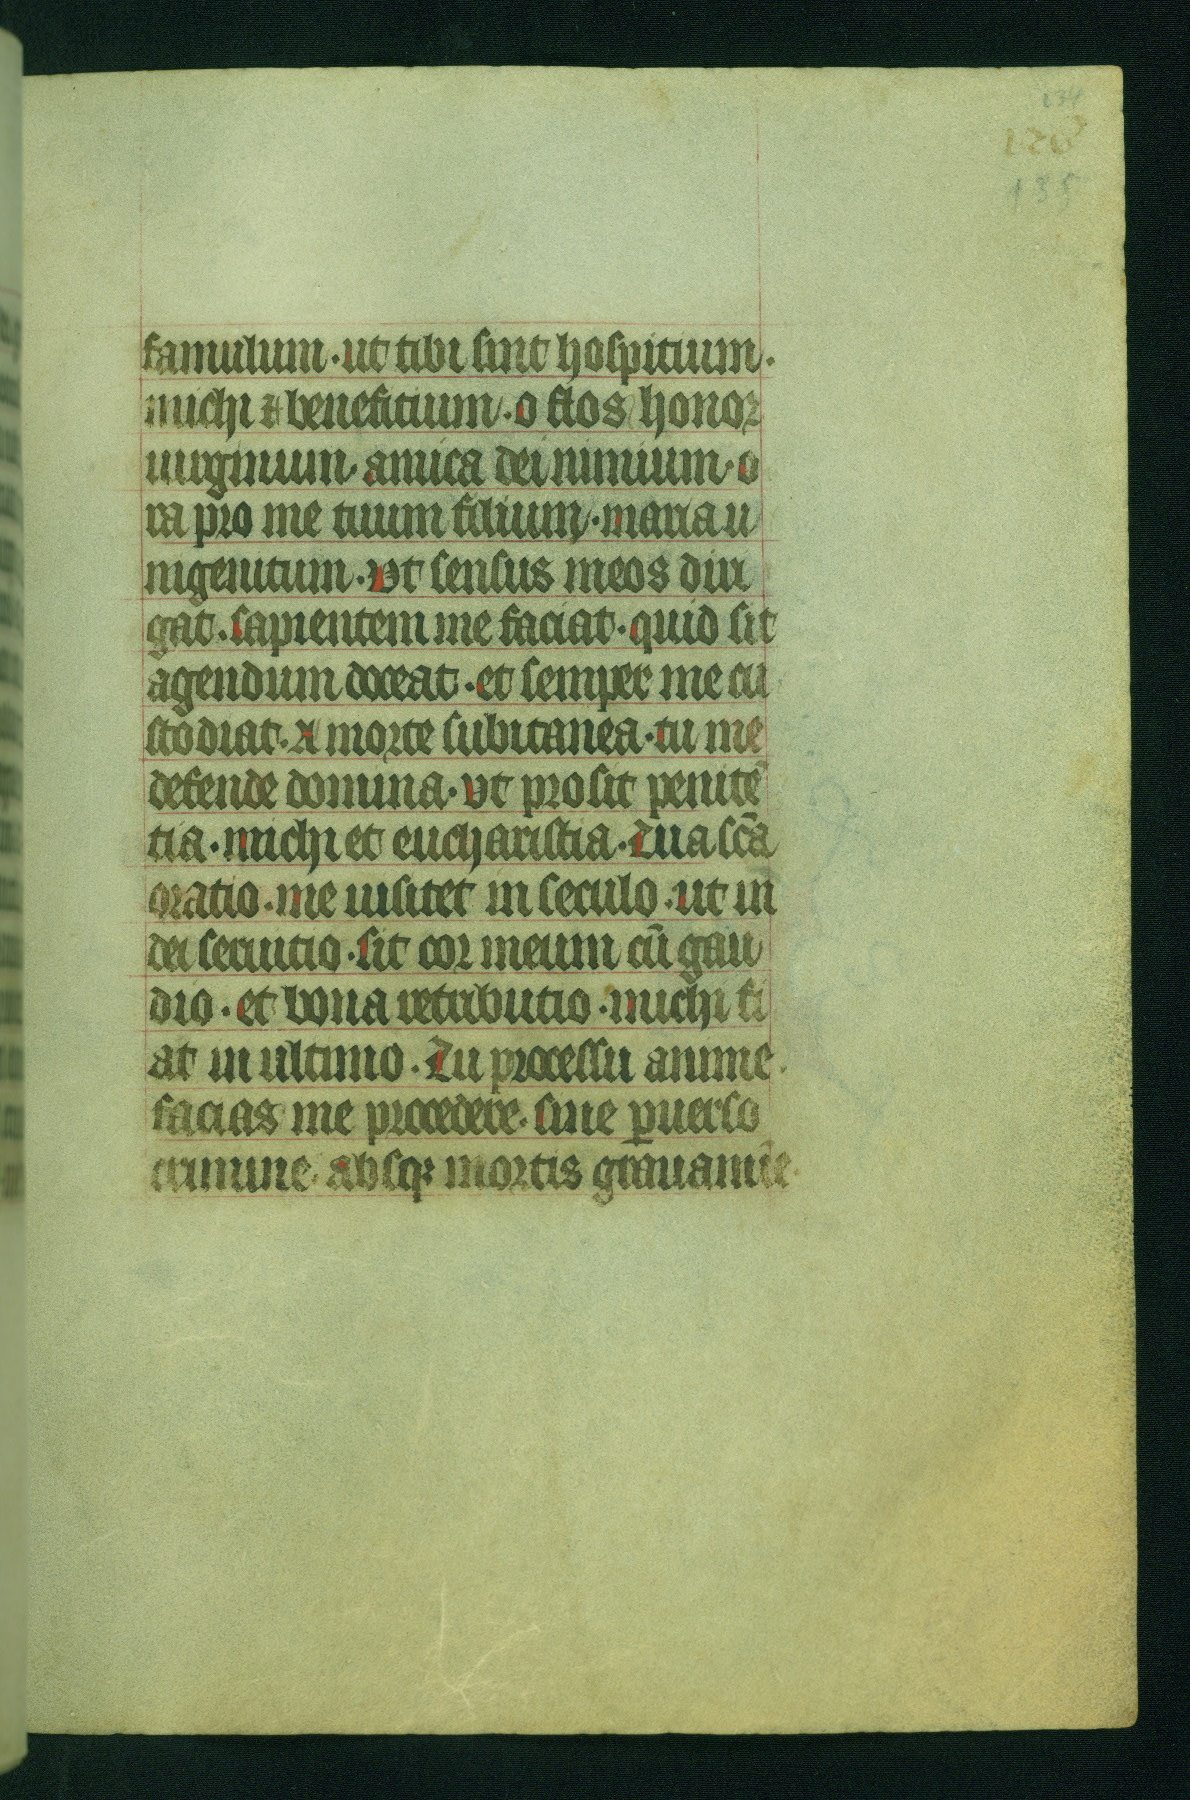 134
135
famulum · ut tibi sint hospitium ·
michi & benefitium · o flos honor
uirginum · amica dei nimium · o
ra pro me tuum filium · maria u
nigenitum · Ut sensus meos diri
gat · sapientem me faciat · quid sit
agendum doceat · et semper me cu
stodiat · A morte subitanea · tu me
defende domina · ut prosit penitē
tia · michi et eucharistia · Tua scā
oratio · me uisitet in seculo · ut in
dei seruitio · sit cor meum cū gau
dio · et bona retributio · michi fi
at in ultimo · Tu processu anime ·
facias me procedere · sine ꝑuerso
crimine · absqꝫ mortis grauamīe ·